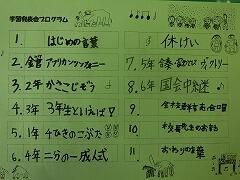 学習発表会プログラム
1. はじめの言葉
2. 金管 アフリカンシンフォニー
3. 2年 かさこじぞう
4. 3年 3年生といえば
5. 1年 4ひきのこぶた
6. 4年 二分の一成人式
休けい
7. 5年
8. 6年 国会中継
9. 全校群読合唱
10. 校長先生のお話
11. おわりの言葉